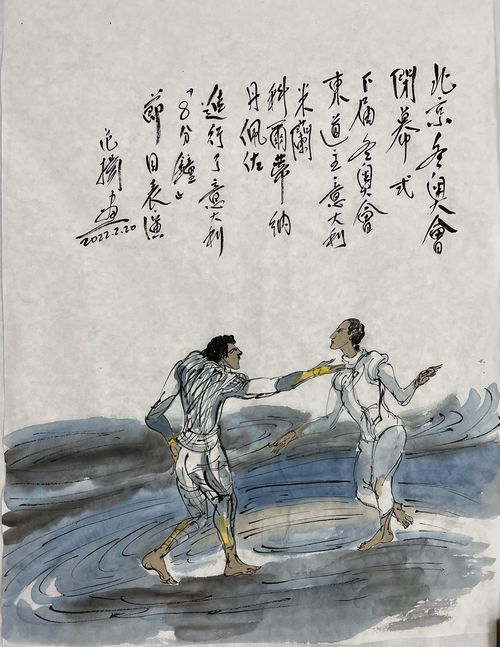 北京冬奥會
閉幕式
下届冬奥會
東道主意大利
米蘭
科爾蒂納
丹佩佐
進行了意大利
「8分鐘」
節目表演
范 畫
2022.2.20